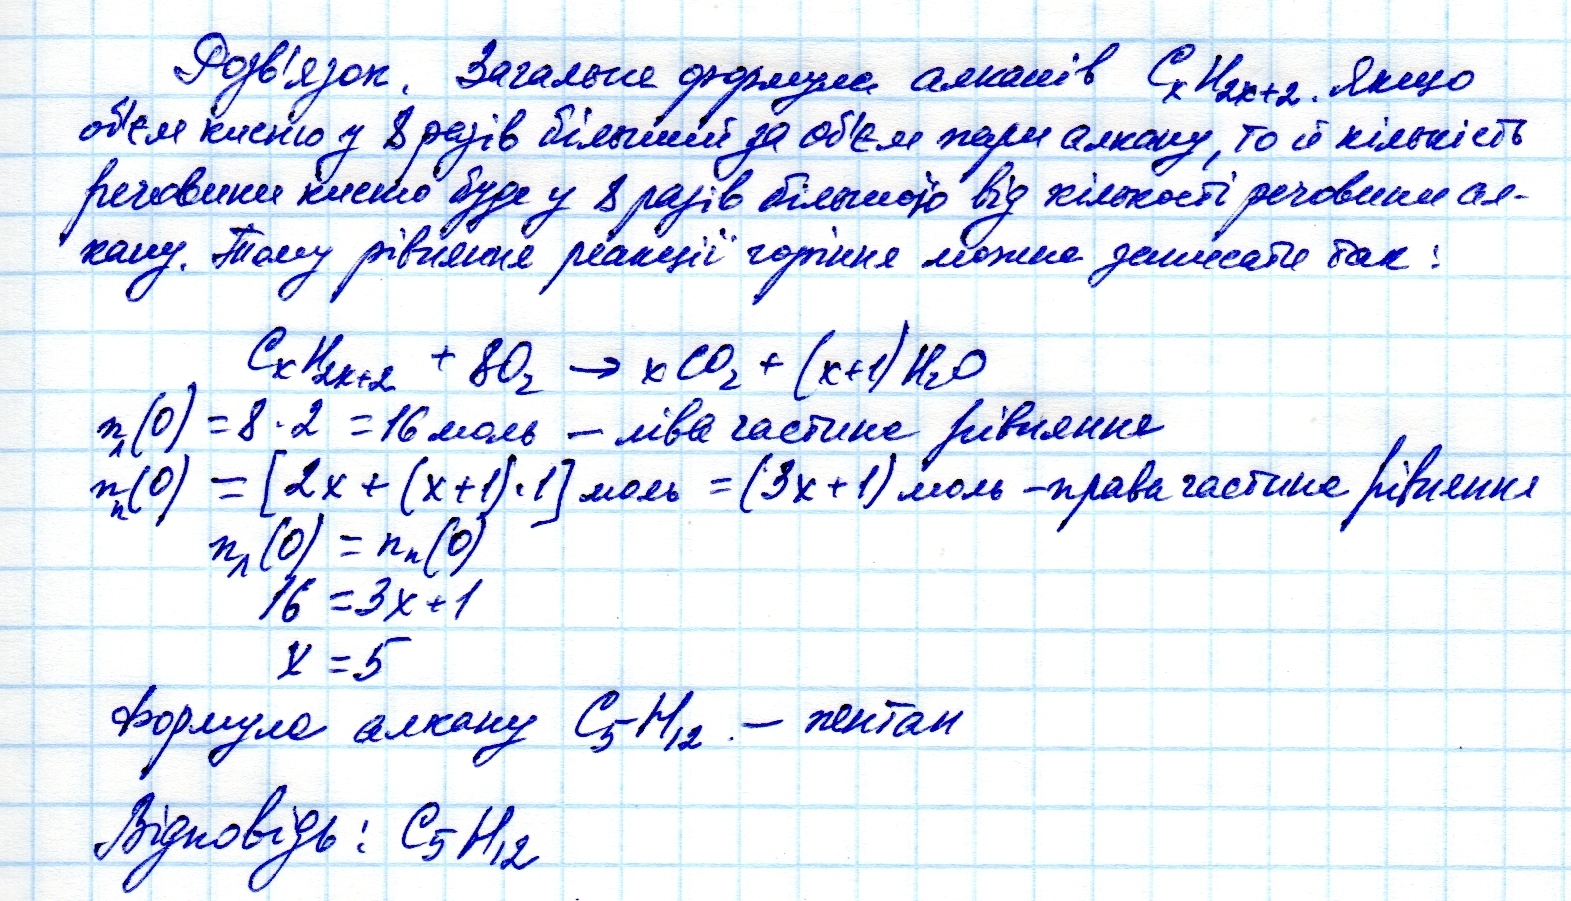 Розв'язок. Загальна формула алканів CₓH₂ₓ₊₂. Якщо
об'єм кисню у 8 разів більший за об'єм пари алкану, то й кількість
речовини кисню буде у 8 разів більшою від кількості речовини ал-
кану. Тому рівняння реакції горіння можна записати так:
CₓH₂ₓ₊₂ + 8O₂ → xCO₂ + (x+1)H₂O
nл(O) = 8·2 = 16 моль – ліва частина рівняння
nп(O) = [2x + (x+1)·1] моль = (3x+1) моль – права частина рівняння
nл(O) = nп(O)
16 = 3x+1
x = 5
Формула алкану C₅H₁₂ – пентан
Відповідь: C₅H₁₂